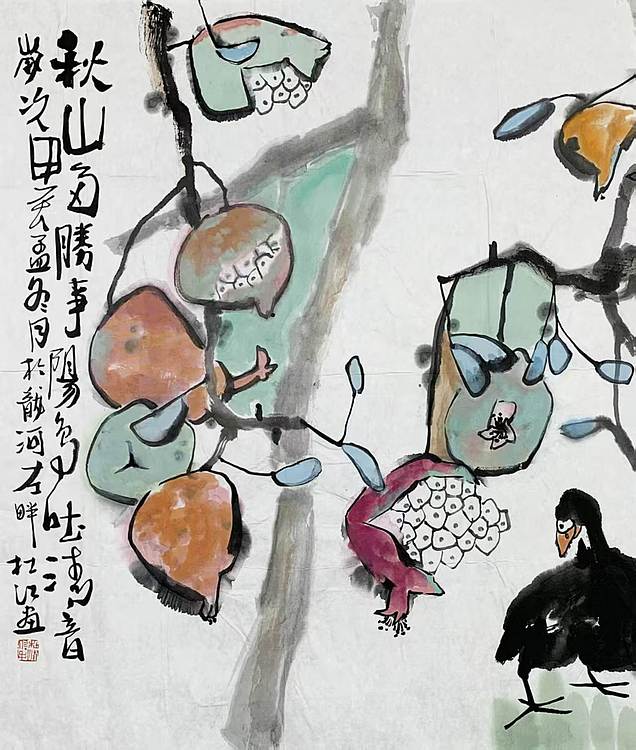 秋山多勝事陽鳥吐清音
歲次甲辰孟冬月於龍河左畔杜江画